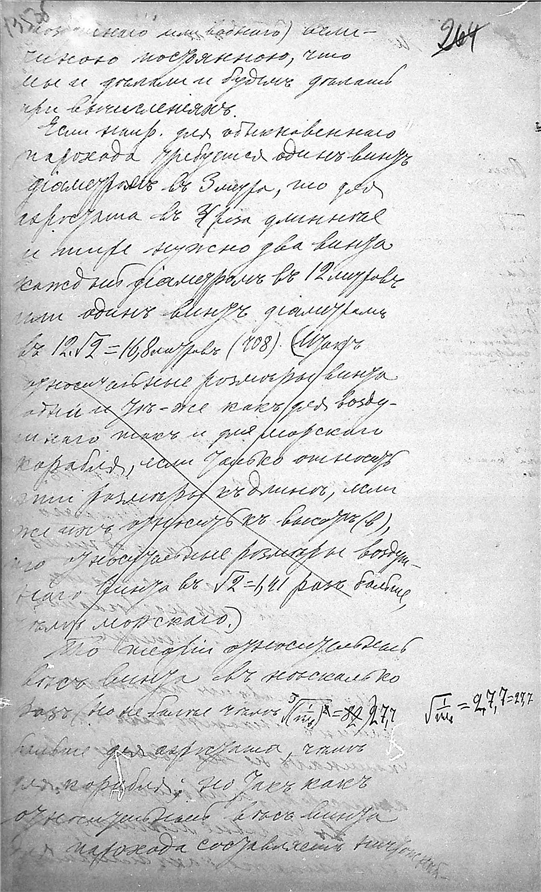 264
(воздушнаго или воднаго) величиною постоянною, что
мы и делали и будемъ делать
при вычисленіяхъ.
Если напр. для обыкновеннаго
парохода требуется одинъ винтъ
діаметромъ въ 3 метра, то для
аэростата въ 4 раза длиннѣе
и шире нужно два винта
каждый діаметромъ въ 12 метровъ
или одинъ винтъ діаметромъ
въ 12.√2 = 16,8 метровъ (108). (Итакъ
относительные розмѣры винта
одни и тѣ-же какъ для возду-
шнаго такъ и для морского
корабля, если только относить
эти розмѣры къ длинѣ, если
же ихъ относить къ высотѣ (в),
то относительные розмѣры воздуш-
наго винта въ √2 = 1,41 разъ больше,
чѣмъ морского.)
относительный
вѣсъ винта въ нѣсколько
разъ но не болѣе чѣмъ 27,7
= 27,7 = 27,7
больше для аэростата, чѣмъ
для корабля; но такъ какъ
относительный вѣсъ винта
парохода составляетъ